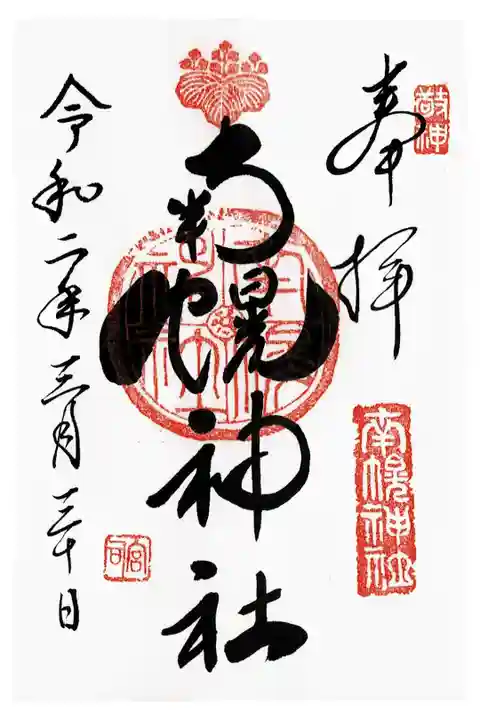 敬神
奉拝
南幌神社
南幌神社
宮司
令和二年三月三十日